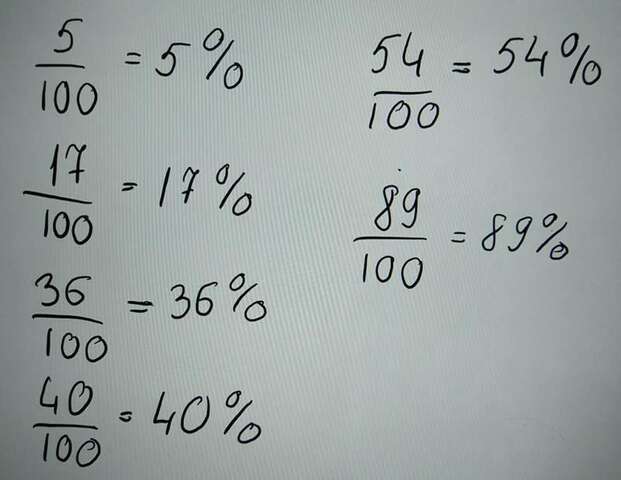 5/100 = 5%
17/100 = 17%
36/100 = 36%
40/100 = 40%
54/100 = 54%
89/100 = 89%